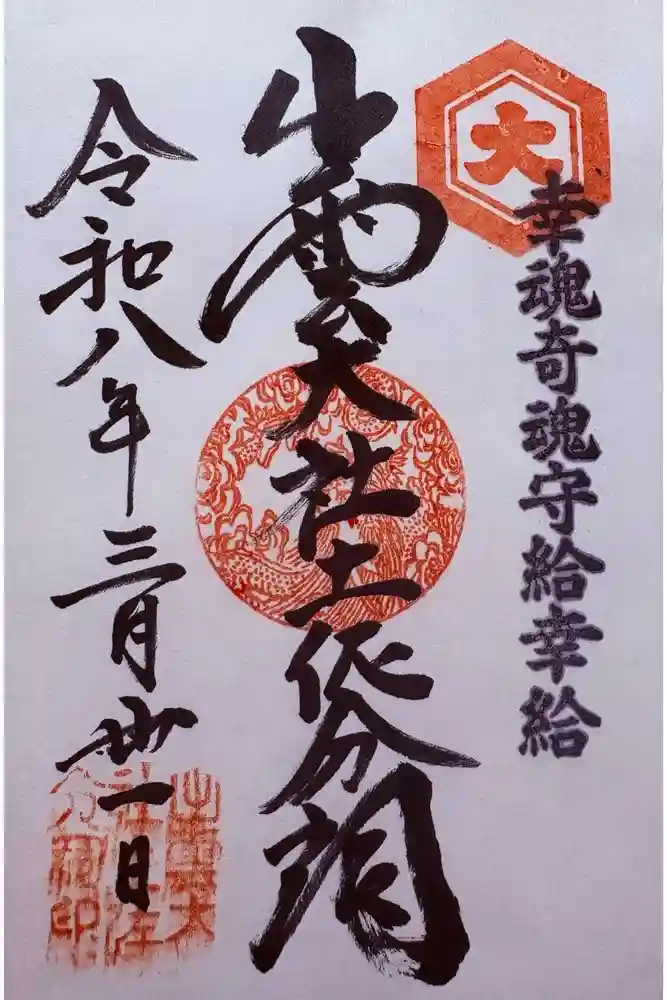 大
幸魂奇魂守給幸給
出雲大社土佐分祠
令和八年三月廿一日
出雲大
社土佐
分祠印